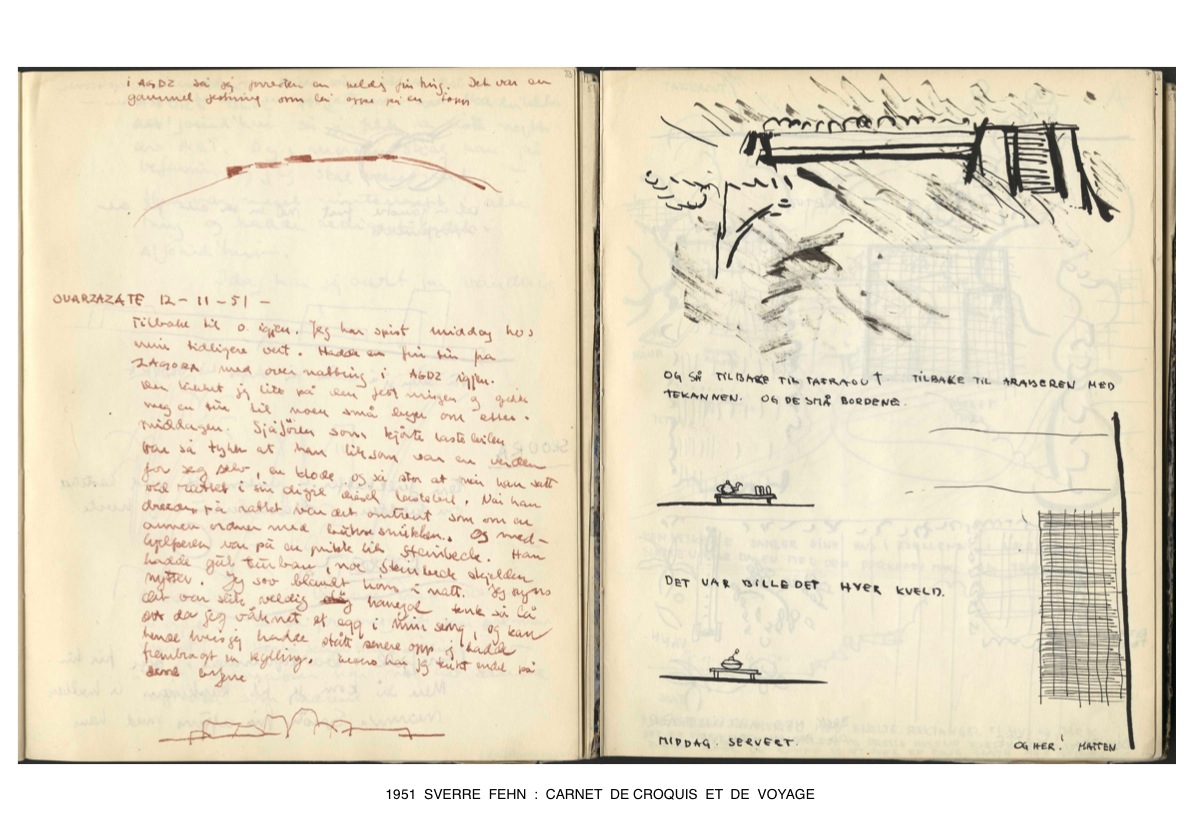 i AGDZ så jeg forresten en veldig fin ting. Det var en
gammel festning som lå oppe på en topp
OUARZAZATE 12-11-51 -
Tilbake til O. igjen. Jeg har spist middag hos
min tidligere vert. Hadde en fin tur fra
ZAGORA med overnatting i AGDZ igjen.
Der kikket jeg litt på den festningen og gikk
meg en tur til noen små byer om etter-
middagen. Sjåføren som kjørte lastebilen
var så tykk at han liksom var en verden
for seg selv, en klode, og så stor at men han satt
ved rattet i sin digre diesel lastebil. Når han
dreide på rattet var det omtrent som om en
annen ordner med
hjelperen var på en prikk lik Steinbeck. Han
hadde gul turban (noe Steinbeck skjelden
nytter. Jeg sov blandt høns i natt. Jeg synes
det var så veldig hanegal tenk så lå
da jeg våknet et egg i min seng, og kan
hende hvis jeg hadde stått senere opp jeg hadde
frembragt en kylling.
OG SÅ TILBAKE TIL TAFRAOUT TILBAKE TIL ARABEREN MED
TEKANNEN. OG DE SMÅ BORDENE.
DET VAR BILLEDET HVER KVELD.
MIDDAG SERVERT.
OG HER! MATTEN
1951 SVERRE FEHN : CARNET DE CROQUIS ET DE VOYAGE